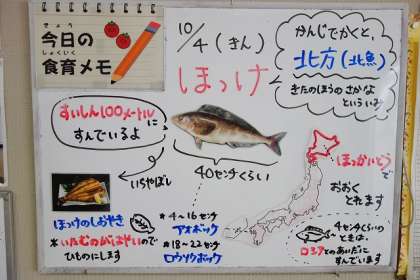 きょう
今日の
しょくいく
食育メモ
10/4(きん)
ほっけ
かんじでかくと、
北方(北魚)
きたのほうの さかな
という
すいしん100メートルに
すんでいるよ
いちやぼし
40センチくらい
ほっけのしおやき
*いたむのがはやいので
ひものにします
*4~16センチ
アオボッケ
*18~22センチ
ロウソクボッケ
ほっかいどうで
おおく
とれます
4センチくらいの
ときは、
ロシアとのあいだに
すんでいます